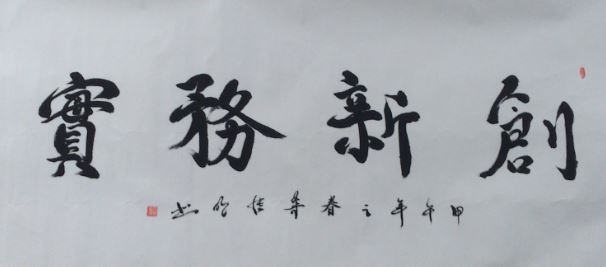 創新務實
甲午年之春 书